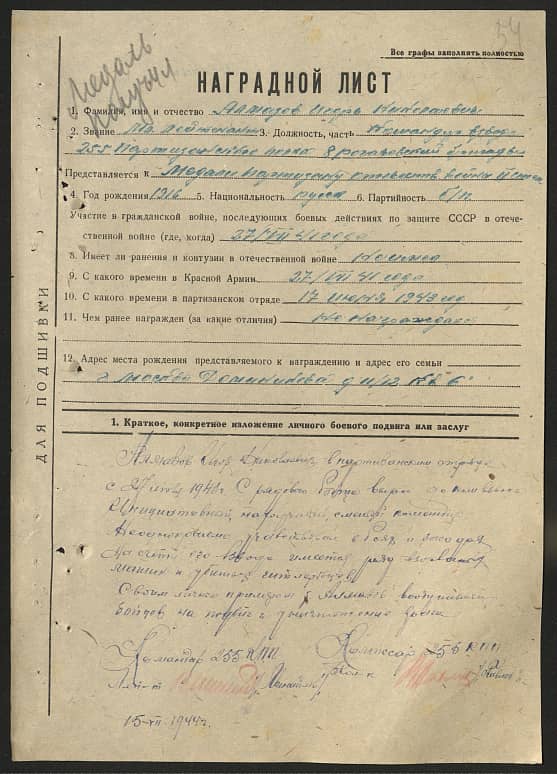 54
Все графы заполнять полностью
Медаль
получил
НАГРАДНОЙ ЛИСТ
1. Фамилия, имя и отчество Алмазов Игорь Николаевич
2. Звание Мл. лейтенант 3. Должность, часть Командир взвода
255 Партизанского полка 8 Рогачевской бригады
Представляется к Медали Партизану отечеств. войны II степ
4. Год рождения 1916 5. Национальность русск 6. Партийность б/п.
Участие в гражданской войне, последующих боевых действиях по защите СССР в отече-
ственной войне (где, когда) 27/VII 41 года
8. Имеет ли ранения и контузии в отечественной войне
9. С какого времени в Красной Армии 27/VII 41 года
10. С какого времени в партизанском отряде 17 июня 1943 год
11. Чем ранее награжден (за какие отличия) Не награжден
12. Адрес места рождения представляемого к награждению и адрес его семьи
г. Москва д 11/12 кв "6"
ДЛЯ ПОДШИВКИ
1. Краткое, конкретное изложение личного боевого подвига или заслуг
Алмазов Игорь Николаевич в партизанском отряде
с 1943г. С рядового бойца вырос до ком взвода
Инициативный, находчивый, смелый командир
участвовал в боях и засадах
На счету его взвода имеется ряд взорванных
машин и убитых гитлеровцев
Своим личным примером т Алмазов
бойцов на подвиг
Командир 255 КПП Комиссар 255 КПП
15-VII-1944г.